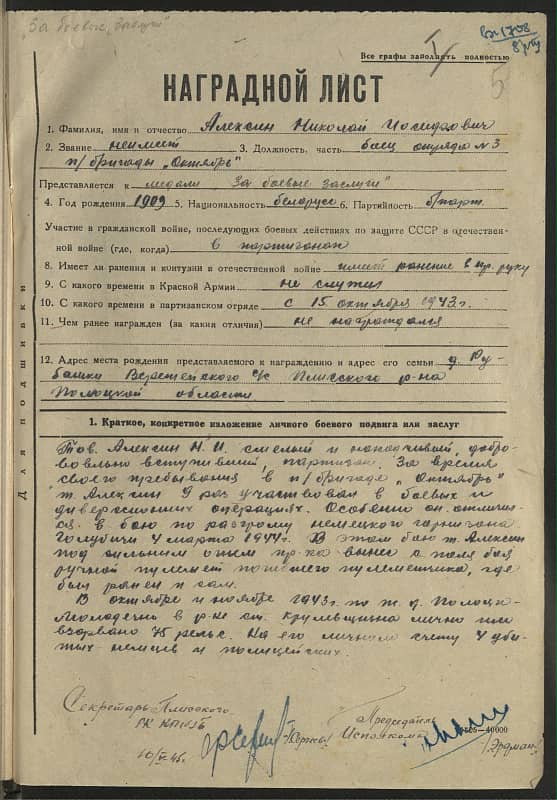 "За боевые заслуги"
вх 1708
8/VIII
Все графы заполнять полностью
5
НАГРАДНОЙ ЛИСТ
1. Фамилия, имя и отчество Алексин Николай Иосифович
2. Звание неимеет 3. Должность, часть боец отряда №3
п/бригады „Октябрь"
Представляется к медали „За боевые заслуги"
4. Год рождения 1909 5. Национальность беларусс 6. Партийность б/парт.
Участие в гражданской войне, последующих боевых действиях по защите СССР и отечествен-
ной войне (где, когда) в партизанах
8. Имеет ли ранения и контузии в отечественной войне имеет ранение в пр. руку
9. С какого времени в Красной Армии не служил
10. С какого времени в партизанском отряде с 15 октября 1943 г.
11. Чем ранее награжден (за какия отличия) не награждался
12. Адрес места рождения представляемого к награждению и адрес его семьи д. Ру-
башки Верстейского с/с Плисского р-на
Полоцкой области
Для подшивки
1. Краткое, конкретное изложение личного боевого подвига или заслуг
Тов. Алексин Н. И. смелый и находчивый, добро-
вольно вступивший, партизан. За время
своего пребывания в п/бригаде „Октябрь"
т. Алексин 9 раз участвовал в боевых и
диверсионных операциях. Особенно он отличил-
ся в бою по разгрому немецкого гарнизона
Голубичи 4 марта 1944 г. В этом бою т. Алексин
под сильным огнем пр-ка вынес с поля боя
ручной пулемет погибшего пулеметчика, где
был ранен и сам.
В октябре и ноябре 1943 г. по ж.д. Полоцк-
Молодечно в р-не ст. Крулевщизна лично им
взорвано 75 рельс. На его личном счету 4 уби-
тых немцев и полицейских.
Секретарь Плисского
РК КП(б)Б
Председатель
Исполкома
/Эрдман/
10/VI 45г.
40000